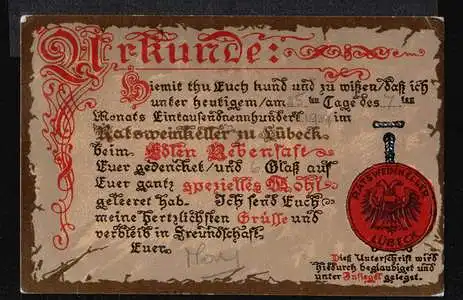 Urkunde:
Hiemit thu Euch kund und zu wißen/daß ich
unter heutigem/am 25 ten Tage des 7 ten
Monats Eintausendneunhundert im
Ratsweinkeller zu Lübeck
beim Edlen Rebensaft
Euer gedenchet/und Glaß auf
Euer gantz spezielles Wohl
geleeret hab. Ich send Euch
meine hertzlichsten Grüße und
verbleib in Freundschaft
Euer
RATSWEINKELLER
LÜBECK
Dieß Unterschrift wird
hiedurch beglaubiget und
unter Insiegel geleget.